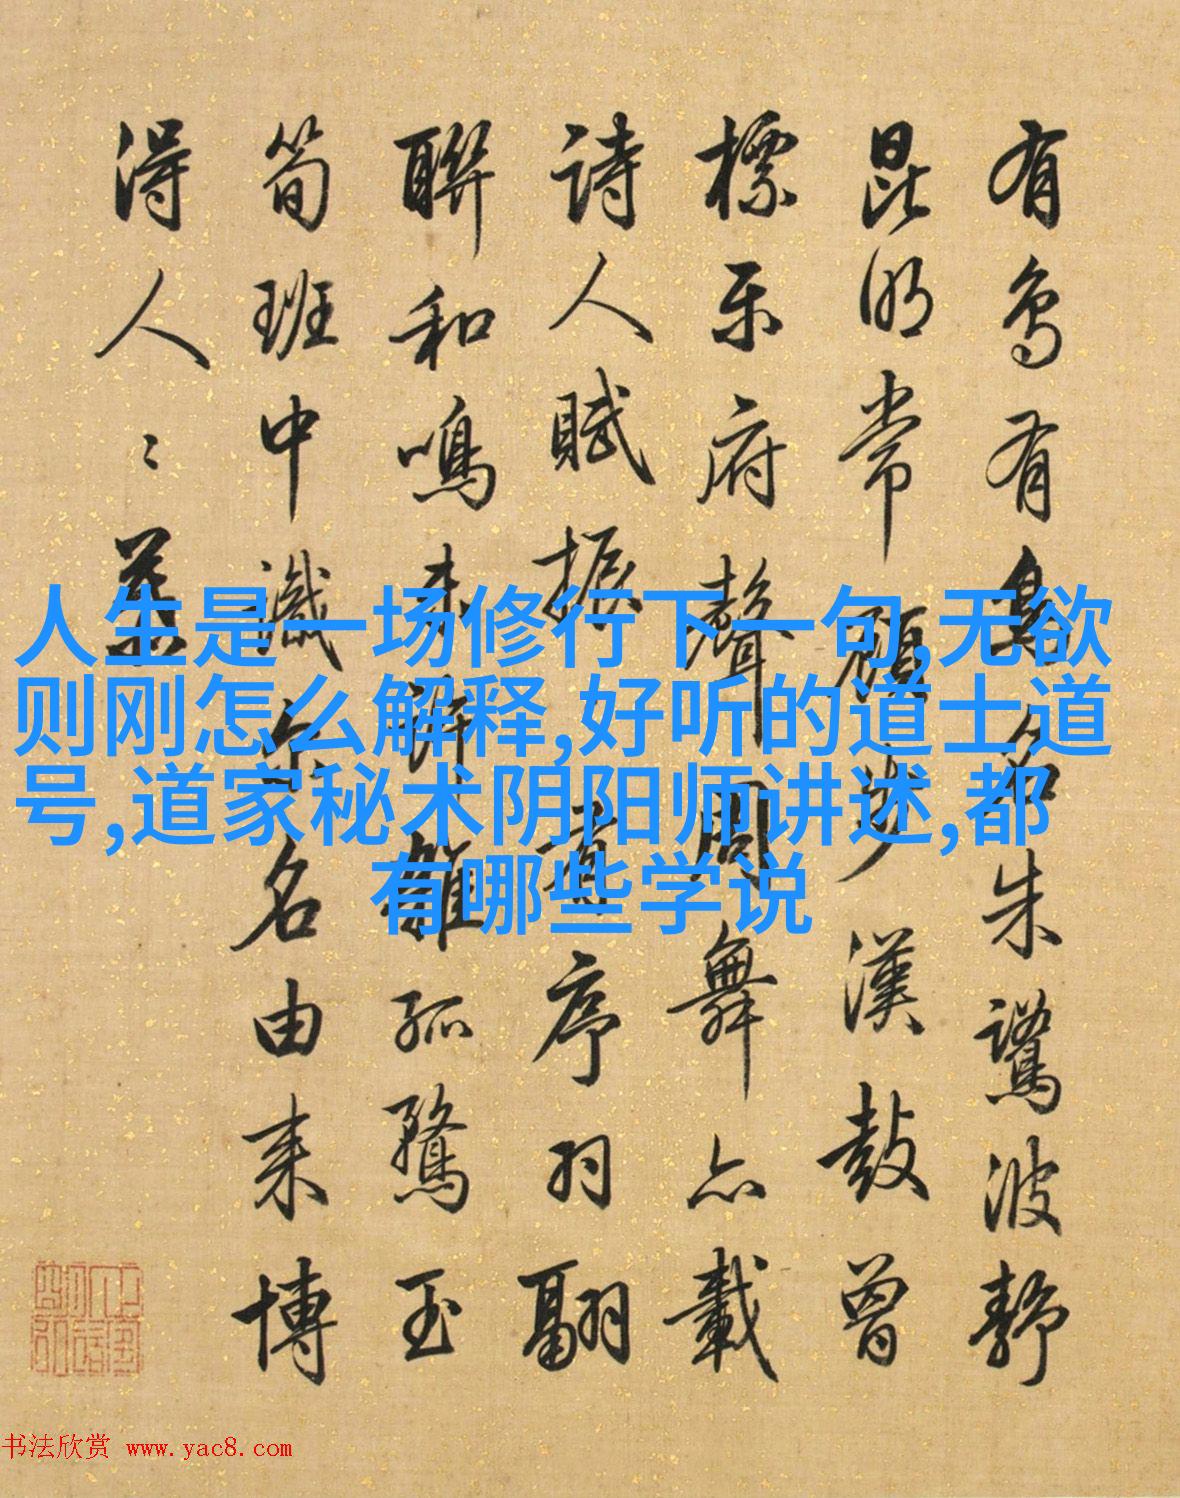 有鳥有鳥名朱鷺波静
昆明常顧步漢鼓曾
標乐府聲聞舞亦載
诗人賦振序羽翮
聯和鳴未許雜孤鶩玉
筍班中識尔名由来博
得人〻
人生是一场修行下一句,无欲
则刚怎么解释,好听的道士道
号,道家秘术阴阳师讲述,都
有哪些学说
书法欣赏 www.yac8.com